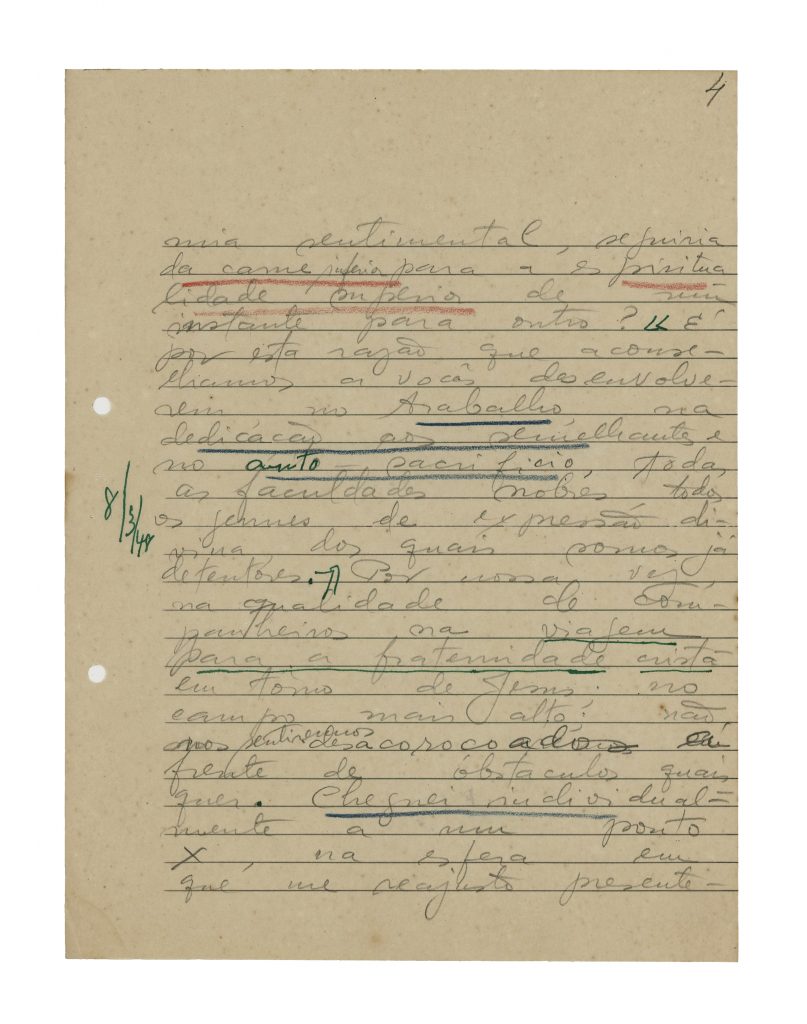 4
mia sentimental, seguiria
da carne inferior para a espiritua
lidade superior de um
instante para outro? É
por esta razão que aconse-
lhamos a vocês desenvolve-
rem no trabalho na
dedicação aos semelhantes e
no auto-sacrificio, todas
as faculdades nobres todos
os germes de expressão di-
vina, dos quais somos já
detentores. Por nossa vez,
na qualidade de com-
panheiros na viagem
para a fraternidade cristã
em torno de Jesus, no
campo mais alto, não
nos sentiremos desacorocoados em
frente de obstaculos quais
quer. Cheguei individual-
mente a um ponto
X, na esfera em
que me reajusto presente-
8/3/48